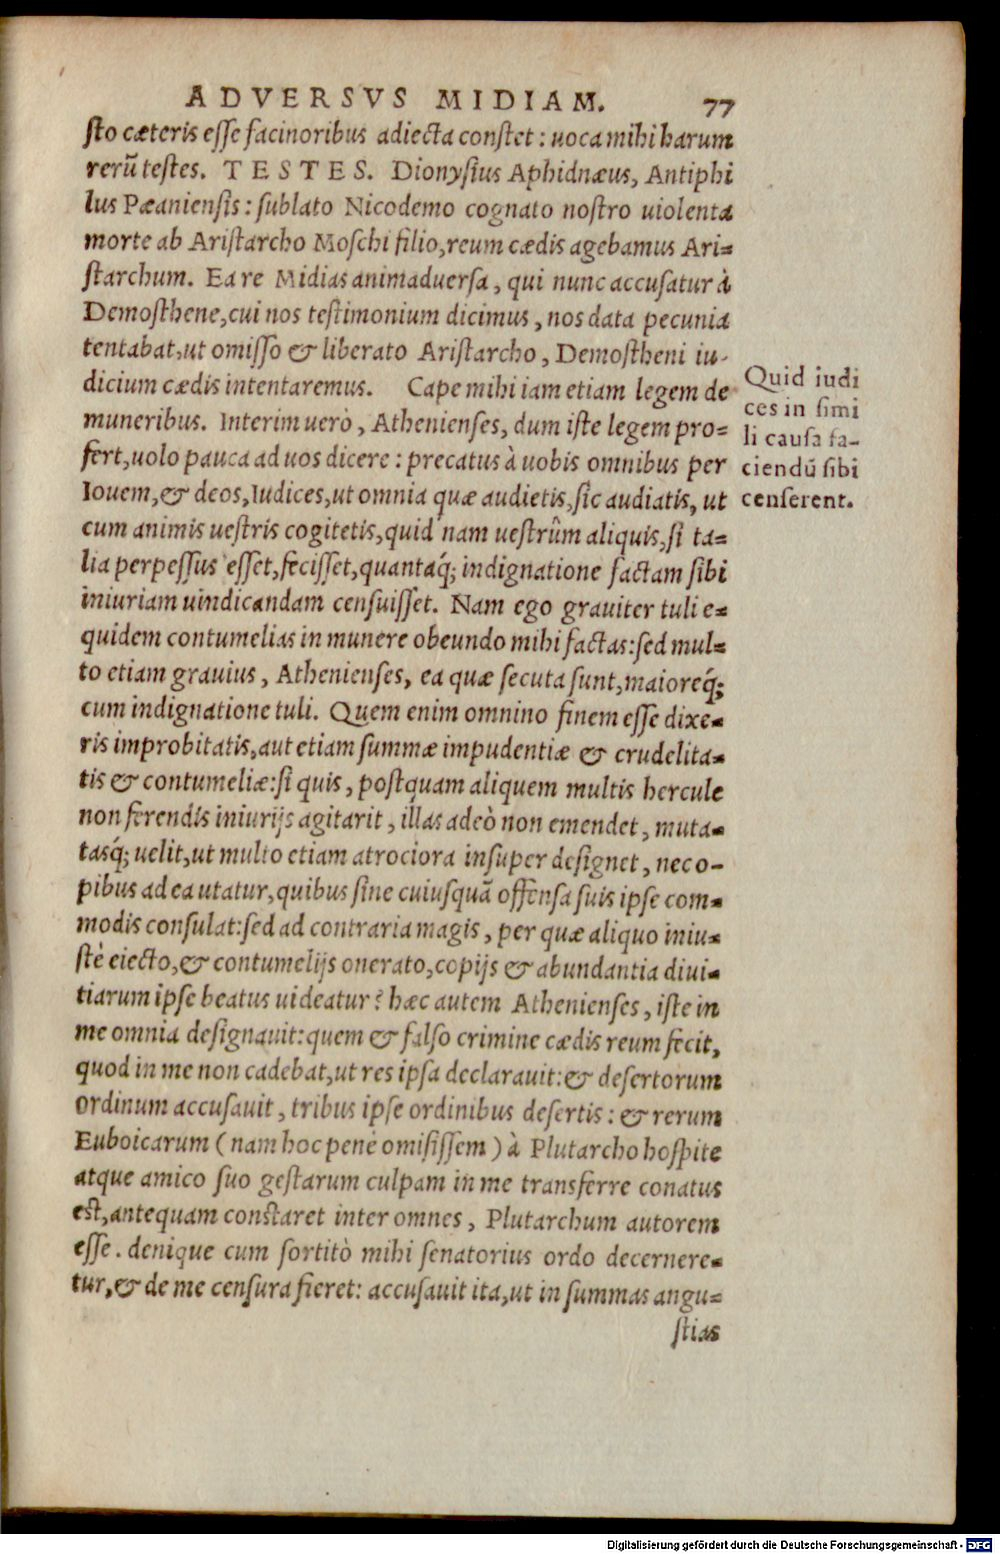 ADVERSVS MIDIAM. 77
sto cæteris esse facinoribus adiecta constet: uoca mihi harum
rerū testes. TESTES. Dionysius Aphidnæus, Antiphi
lus Pæaniensis: sublato Nicodemo cognato nostro uiolenta
morte ab Aristarcho Moschi filio, reum cædis agebamus Ari=
starchum. Ea re Midias animaduersa, qui nunc accusatur à
Demosthene, cui nos testimonium dicimus, nos data pecunia
tentabat, ut omisso & liberato Aristarcho, Demostheni iu-
dicium cædis intentaremus. Cape mihi iam etiam legem de
muneribus. Interim uerò, Athenienses, dum iste legem pro=
fert, uolo pauca ad uos dicere: precatus à uobis omnibus per
Iouem, & deos, Iudices, ut omnia quæ audietis, sic audiatis, ut
cum animis uestris cogitetis, quid nam uestrûm aliquis, si ta=
lia perpessus esset, fecisset, quantaq́; indignatione factam sibi
iniuriam uindicandam censuisset. Nam ego grauiter tuli e=
quidem contumelias in munere obeundo mihi factas: sed mul=
to etiam grauius, Athenienses, ea quæ secuta sunt, maioreq́;
cum indignatione tuli. Quem enim omnino finem esse dixe=
ris improbitatis, aut etiam summæ impudentiæ & crudelita=
tis & contumeliæ: si quis, postquam aliquem multis hercule
non ferendis iniurijs agitarit, illas adeò non emendet, muta=
tasq́; uelit, ut multo etiam atrociora insuper designet, nec o-
pibus ad ea utatur, quibus sine cuiusquā offensa suis ipse com=
modis consulat: sed ad contraria magis, per quæ aliquo iniu=
stè eiecto, & contumelijs onerato, copijs & abundantia diui=
tiarum ipse beatus uideatur? hæc autem Athenienses, iste in
me omnia designauit: quem & falso crimine cædis reum fecit,
quod in me non cadebat, ut res ipsa declarauit: & desertorum
ordinum accusauit, tribus ipse ordinibus desertis: & rerum
Euboicarum (nam hoc penè omisissem) à Plutarcho hospite
atque amico suo gestarum culpam in me transferre conatus
est, antequam constaret inter omnes, Plutarchum autorem
esse. denique cum sortitò mihi senatorius ordo decernere=
tur, & de me censura fieret: accusauit ita, ut in summas angu=
stias
Quid iudi
ces in simi
li causa fa-
ciendū sibi
censerent.
Digitalisierung gefördert durch die Deutsche Forschungsgemeinschaft - DFG